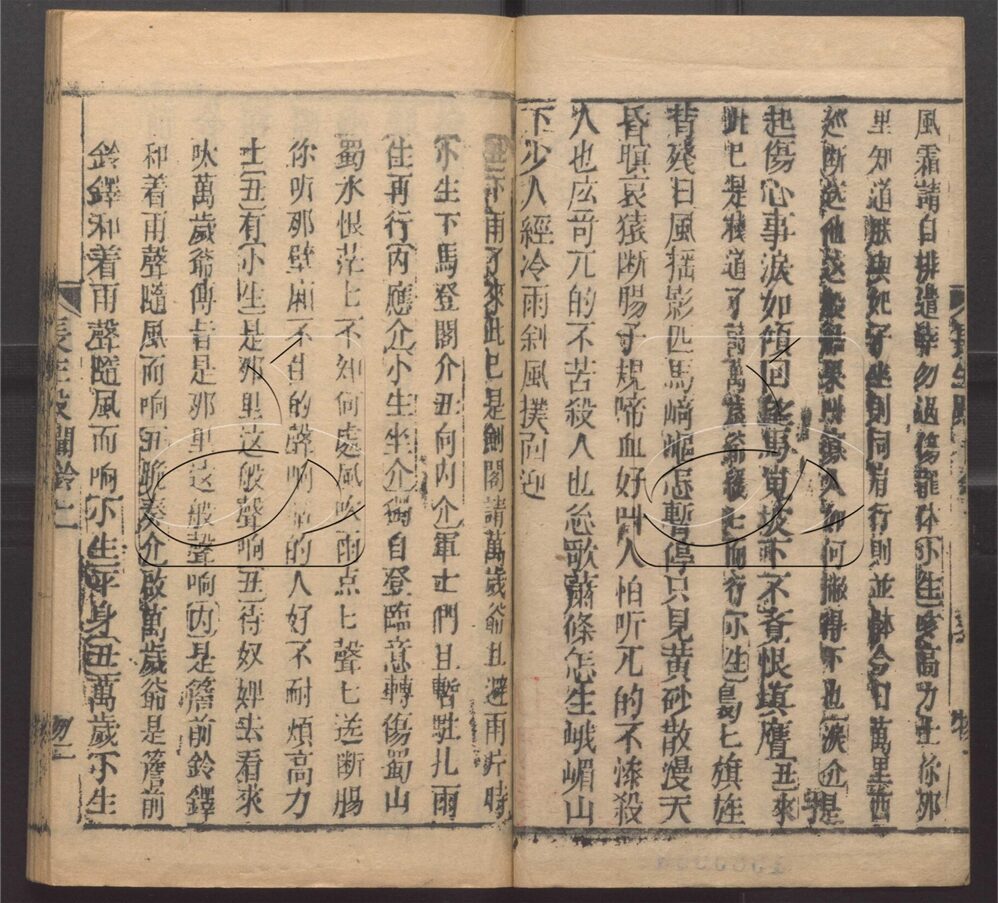 風霜請自排遣莫勿過傷龍体小生唉高力士你那
里知道朕與妃子坐則同肩行則並今日萬里西
巡断送他這般結果教寡人如何撇得下也淚介是
起傷心事淚如傾回望馬嵬坡下不覚恨填膺丑來
此已是棧道了請萬歲爺緩匕而行小生裊匕旗旌
背殘日風搖影匹馬崎嶇怎暫停只見黃砂散漫天
昏暝哀猿断腸子規啼血好叫人怕听兀的不慘殺
人也庅哥兀的不苦殺人也怂歌蕭條怎生峨嵋山
下少人經冷雨斜風撲面迎
丑下雨了來此已是劍閣請萬歲爺且避雨片時
小生下馬登閣介丑向內介軍士們且暫駐扎雨
住再行內應介小生坐介獨自登臨意轉傷蜀山
蜀水恨茫匕不知何處風吹雨点匕聲匕迸断腸
你听那壁廂不住的聲响的人好不耐煩高力
士丑有小生是那里这般聲响丑待奴婢去看來
呔萬歲爺傳旨是那里这般聲响内是簷前鈴鐸
和着雨聲隨風而响丑跪奏介啟萬歲爺是簷前
鈴鐸和着雨聲隨風而响小生平身丑萬歲小生
長生殿聞鈴上